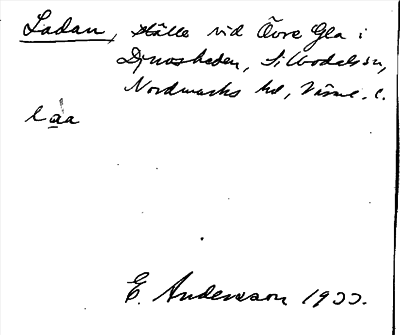 Ladan, ställe vid Övre Gla i
Djuvasheden, Silbodals sn,
Nordmarks hd, Värml. l.
laa
E. Andersson 1922.